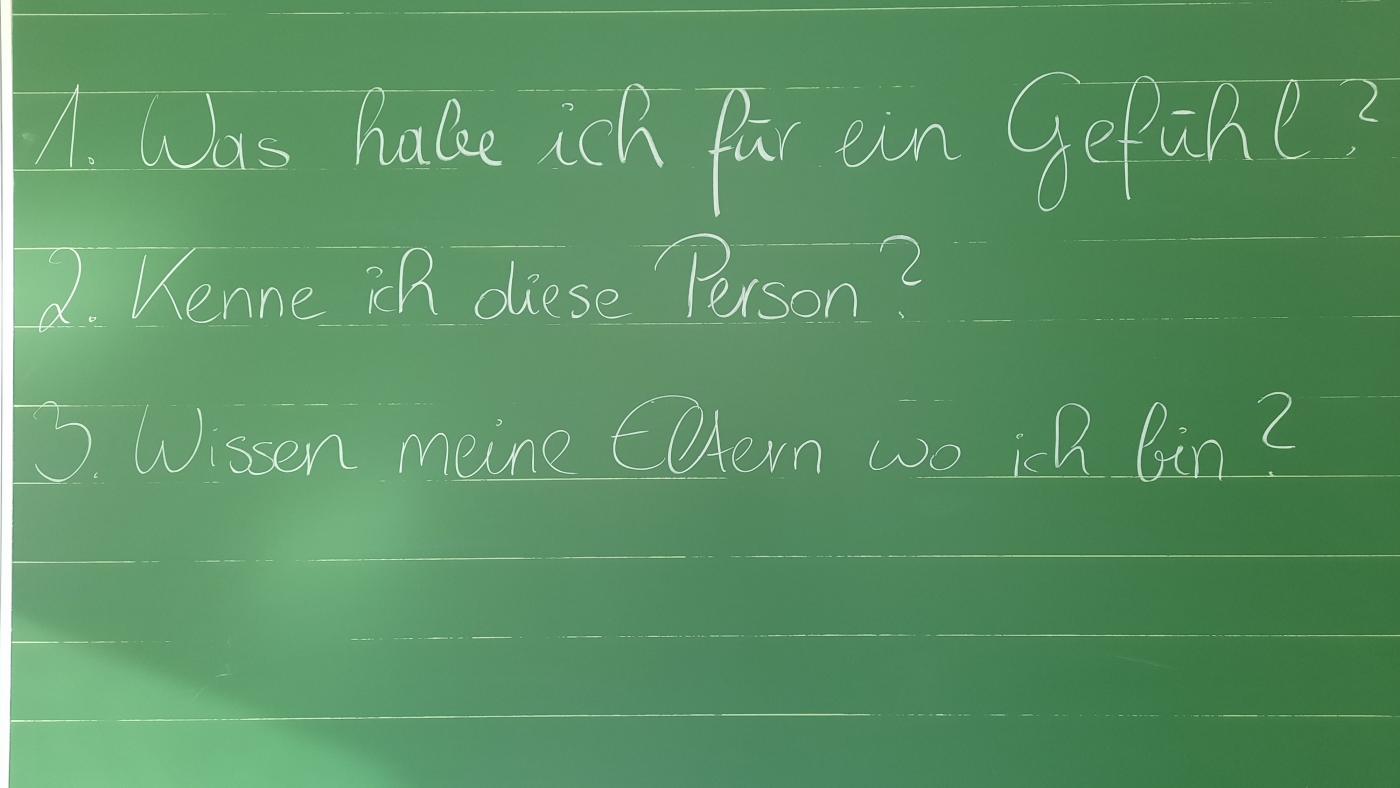 1. Was habe ich für ein Gefühl?
2. Kenne ich diese Person?
3. Wissen meine Eltern wo ich bin?